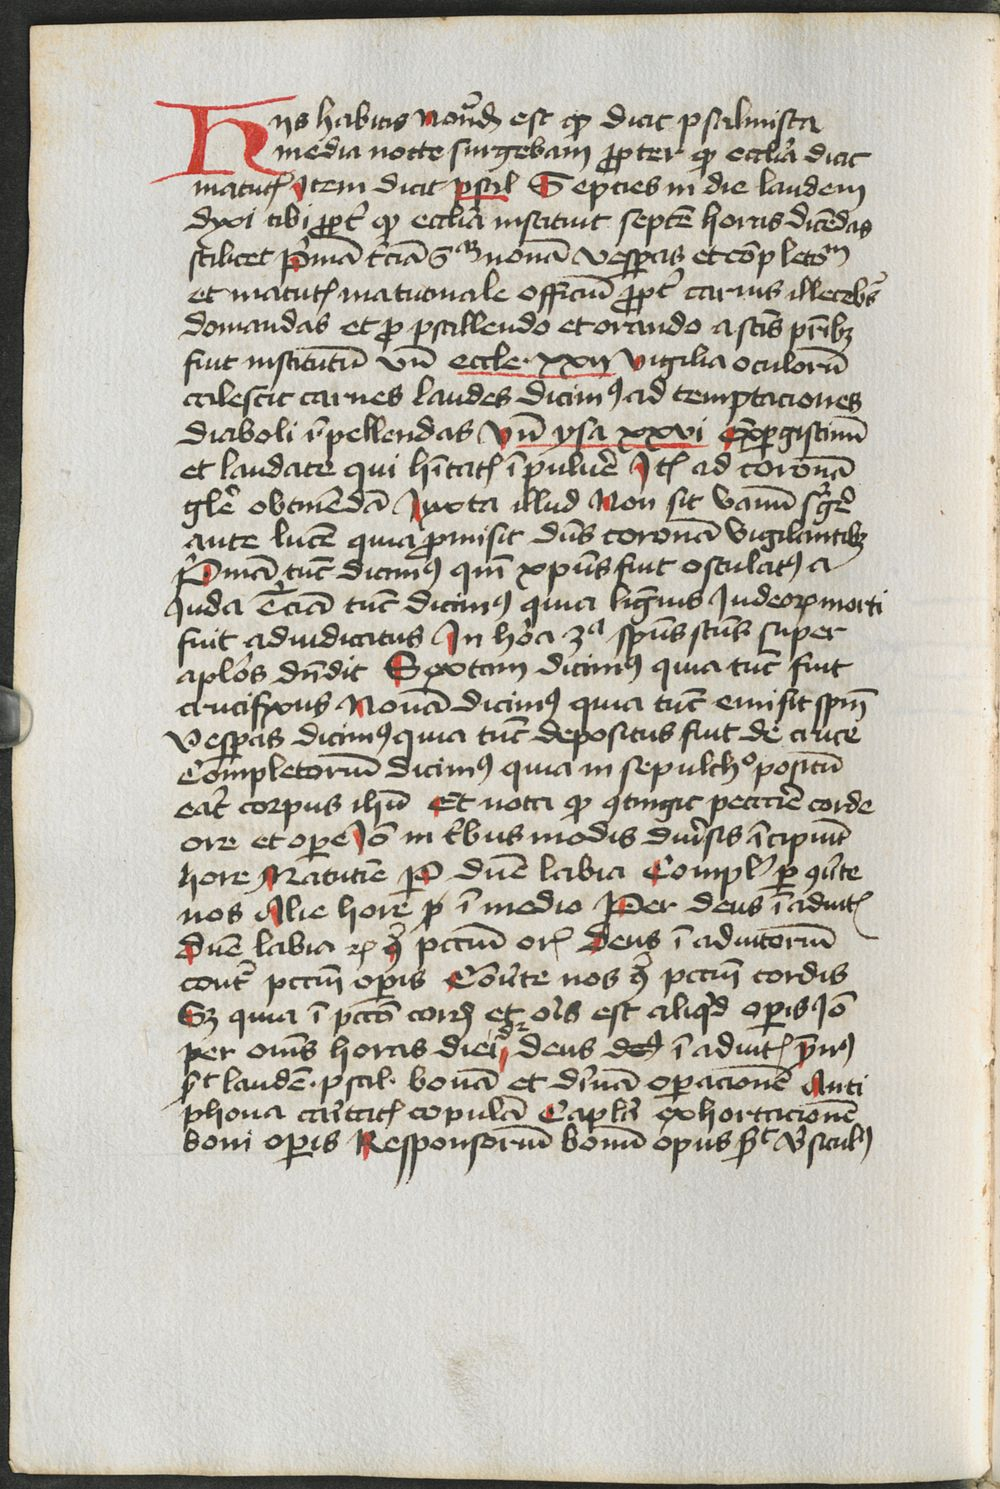 Hys habitis Notand est quod dicit psalmista
media nocte surgebam propter quod ecclia dicit
matut Item dicit psal Septies in die laudem
dyxi tibi propt quod ecclia instituit septe horas dicedas
scilicet Prima tcia 6 nona Vesperas et copleto
et matut matutinale officiu propt carnis illecebs
domandas et pro psallendo et orando a sctis prib3
fuit institutu Vn eccle xxxi Vigilia oculoru
calescit carnes laudes dicim9 ad temptaciones
diaboli ipellendas Vn ysa xxvi Expergiscimi
et laudate qui hitatis i pulue It ad corona
gle obtineda Iuxta illud Non sit vanu surge
ante luce quia promisit dns corona vigilantib3
Prima tuc dicim9 qm xpus fuit osculat9 a
Iuda Tercia tuc dicim9 quia ligneus Iudeor morti
fuit adiudicatus In hora 3a spus scus super
aplos dndit Sextam dicim9 quia tuc fuit
crucifixus Nona dicim9 quia tuc emisit spm
Vesperas dicim9 quia tuc depositus fuit de cruce
Completoriu dicim9 quia in sepulcho positu
eat corpus ihu Et nota quod 9tingit peccare corde
ore et opere Io in tbus modis diusis icipiut
hore Matutie P dne labia Compl per 9uerte
nos Alie hore p i medio Per deus i adiut
Dne labia 9 pccm oris Deus i adiutoriu
cont pccm opis Couerte nos 9 pccm cordis
S3 quia i pcco cord et oris est aliqd operis Io
per omnes horas diei dr deus i adiut
laude psal bona et diuina operacione Anti
phona caritatis copula Caplm exhortacione
boni operis Responsoriu bonu opus Vsicul9